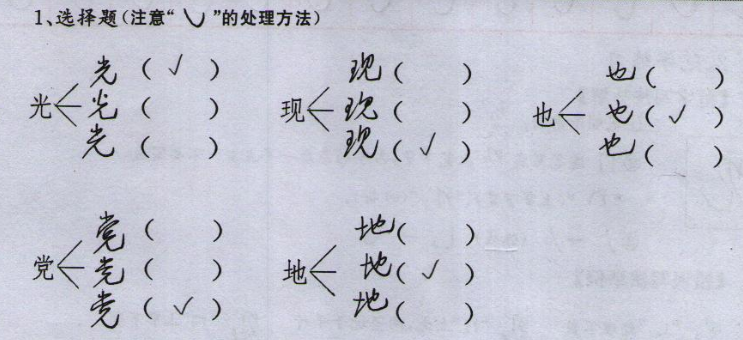 1、选择题(注意“㇃”的处理方法)
光 光(✓) 现( ) 也( )
光 光( ) 现 现( ) 也 也(✓)
光( ) 现(✓) 也( )
党( ) 地( )
党 党( ) 地 地(✓)
党(✓) 地( )